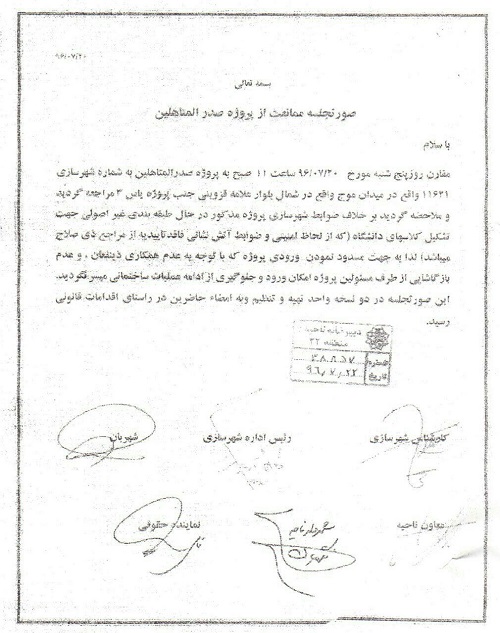 ۹۶/۰۷/۲۰
بسمه تعالی
صورتجلسه ممانعت از پروژه صدر المتاهلین
با سلام
مقارن روزپنج شنبه مورخ ۹۶/۰۷/۲۰ ساعت ۱۱ صبح به پروژه صدرالمتاهلین به شماره شهرسازی
۱۱۶۲۱ واقع در میدان موج واقع در شمال بلوار علامه قزوینی جنب پروژه یاس ۳ مراجعه گردید
و ملاحضه گردید بر خلاف ضوابط شهرسازی پروژه مذکور در حال طبقه بندی غیر اصولی جهت
تشکیل کلاسهای دانشگاه (که از لحاظ امنیتی و ضوابط آتش نشانی فاقد تاییدیه از مراجع ذی صلاح
میباشد) لذا به جهت مسدود نمودن ورودی پروژه که با توجه به عدم همکاری ذینفعان ، و عدم
بازگشایی از طرف مسئولین پروژه امکان ورود و جلوگیری از ادامه عملیات ساختمانی میسر نگردید.
این صورتجلسه در دو نسخه واحد تهیه و تنظیم وبه امضاء حاضرین در راستای اقدامات قانونی
رسید.
دبیرخانه ناحیه
منطقه ۲۲
شماره
تاریخ ۹۶,۷,۲۲
کارشناس شهرسازی رئیس اداره شهرسازی شهربان
معاون ناحیه نماینده حقوقی